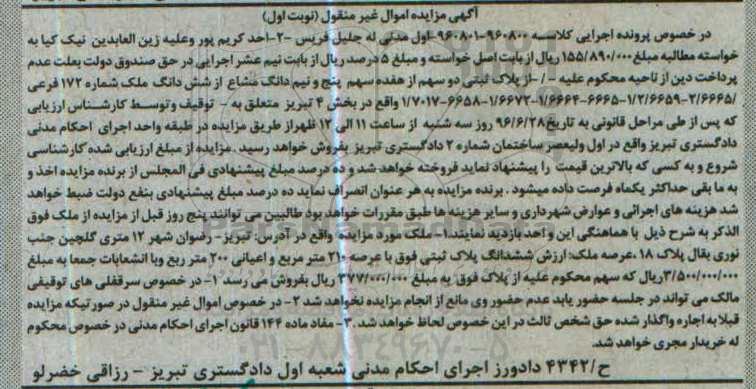 آگهی مزایده اموال غیر منقول (نوبت اول)
در خصوص پرونده اجرایی کلاسه ۹۶۰۸۰۰-۹۶۰۸۰۱-اول مدنی له جلیل فریس -۲-احد کریم پور وعلیه زین العابدین نیک کیا به
خواسته مطالبه مبلغ ۱۵۵/۸۹۰/۰۰۰ ریال از بابت اصل خواسته و مبلغ ۵ درصد ریال از بابت نیم عشر اجرایی در حق صندوق دولت بعلت عدم
پرداخت دین از ناحیه محکوم علیه -/ -از پلاک ثبتی دو سهم از هفده سهم پنج و نیم دانگ مشاع از شش دانگ ملک شماره ۱۷۲ فرعی
/۲/۶۶۶۵-۱/۲/۶۶۵۹-۶۶۶۵-۱/۶۶۶۴-۱/۶۶۷۲-۶۶۵۸-۱/۷۰۱۷ واقع در بخش ۴ تبریز متعلق به - توقیف و توسط کارشناس ارزیابی
که پس از طی مراحل قانونی به تاریخ ۹۶/۶/۲۸ روز سه شنبه از ساعت ۱۱ الی ۱۲ ظهر از طریق مزایده در طبقه واحد اجرای احکام مدنی
دادگستری تبریز واقع در اول ولیعصر ساختمان شماره ۲ دادگستری تبریز بفروش خواهد رسید .مزایده از مبلغ ارزیابی شده کارشناسی
شروع و به کسی که بالاترین قیمت را پیشنهاد نماید فروخته خواهد شد و ده درصد مبلغ پیشنهادی فی المجلس از برنده مزایده اخذ و
به ما بقی حداکثر یکماه فرصت داده میشود . برنده مزایده به هر عنوان انصراف نماید ده درصد مبلغ پیشنهادی بنفع دولت ضبط خواهد
شد هزینه های اجرائی و عوارض شهرداری و سایر هزینه ها طبق مقررات خواهد بود طالبین می توانند پنج روز قبل از مزایده از ملک فوق
الذکر به شرح ذیل با هماهنگی این واحد بازدید نمایند۱- ملک مورد مزایده واقع در آدرس: تبریز- رضوان شهر ۱۲ متری گلچین جنب
نوری بقال پلاک ۱۸ .عرصه ملک: ارزش ششدانگ پلاک ثبتی فوق با عرصه ۲۱۰ متر مربع و اعیانی ۲۰۰ متر ربع وبا انشعابات جمعا به مبلغ
۳/۵۰۰/۰۰۰/۰۰۰ریال که سهم محکوم علیه از پلاک فوق به مبلغ ۳۷۷/۰۰۰/۰۰۰ ریال بفروش می رسد ۱- در خصوص سرقفلی های توقیفی
مالک می تواند در جلسه حضور یابد عدم حضور وی مانع از انجام مزایده نخواهد شد ۲- در خصوص اموال غیر منقول در صورتیکه مزایده
قبلا به اجاره واگذار شده حق شخص ثالث در این خصوص لحاظ خواهد شد .۳- مفاد ماده ۱۴۴ قانون اجرای احکام مدنی در خصوص محکوم
له خریدار مجری خواهد شد.
ح/۴۳۴۲ دادورز اجرای احکام مدنی شعبه اول دادگستری تبریز - رزاقی خضرلو
۰۲۱-۸۸۳۴۹۶۷۰-۵